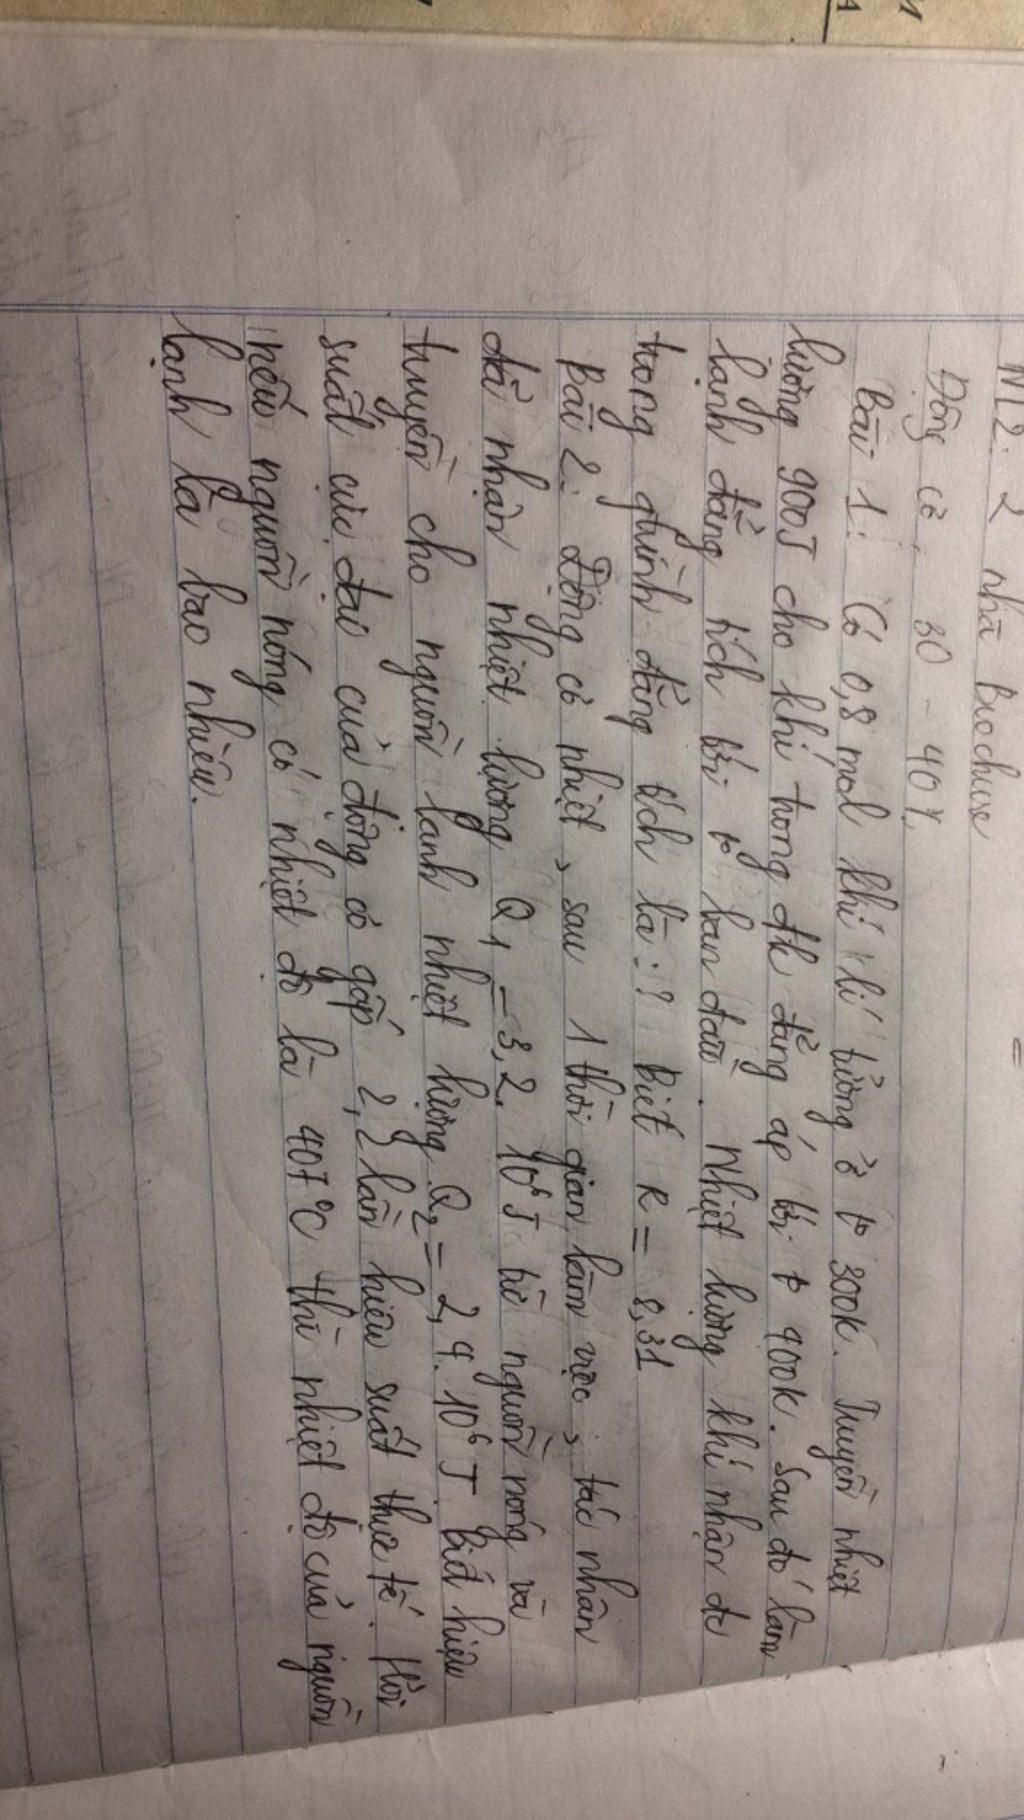 N12: 2 nhà Buochux
Động cơ, 30 - 40%
Bài 1: Có 0,8 mol khí lí tưởng ở to 300K. Truyền nhiệt
lượng 900J cho khí trong đk đẳng áp tới to 400K. Sau đó làm
lạnh đẳng tích tới to ban đầu. Nhiệt lượng khí nhận đc
trong quá trình đẳng tích là:? Biết R = 8,31
Bài 2: Động cơ nhiệt, sau 1 thời gian làm việc, tác nhân
đã nhận nhiệt lượng Q1 = 3,2.10⁶J từ nguồn nóng và
truyền cho nguồn lạnh nhiệt lượng Q2 = 2,4.10⁶J Biết hiệu
suất cực đại của động cơ gấp 2,2 lần hiệu suất thực tế. Hỏi
nếu nguồn nóng có nhiệt độ là 407°C thì nhiệt độ của nguồn
lạnh là bao nhiêu.